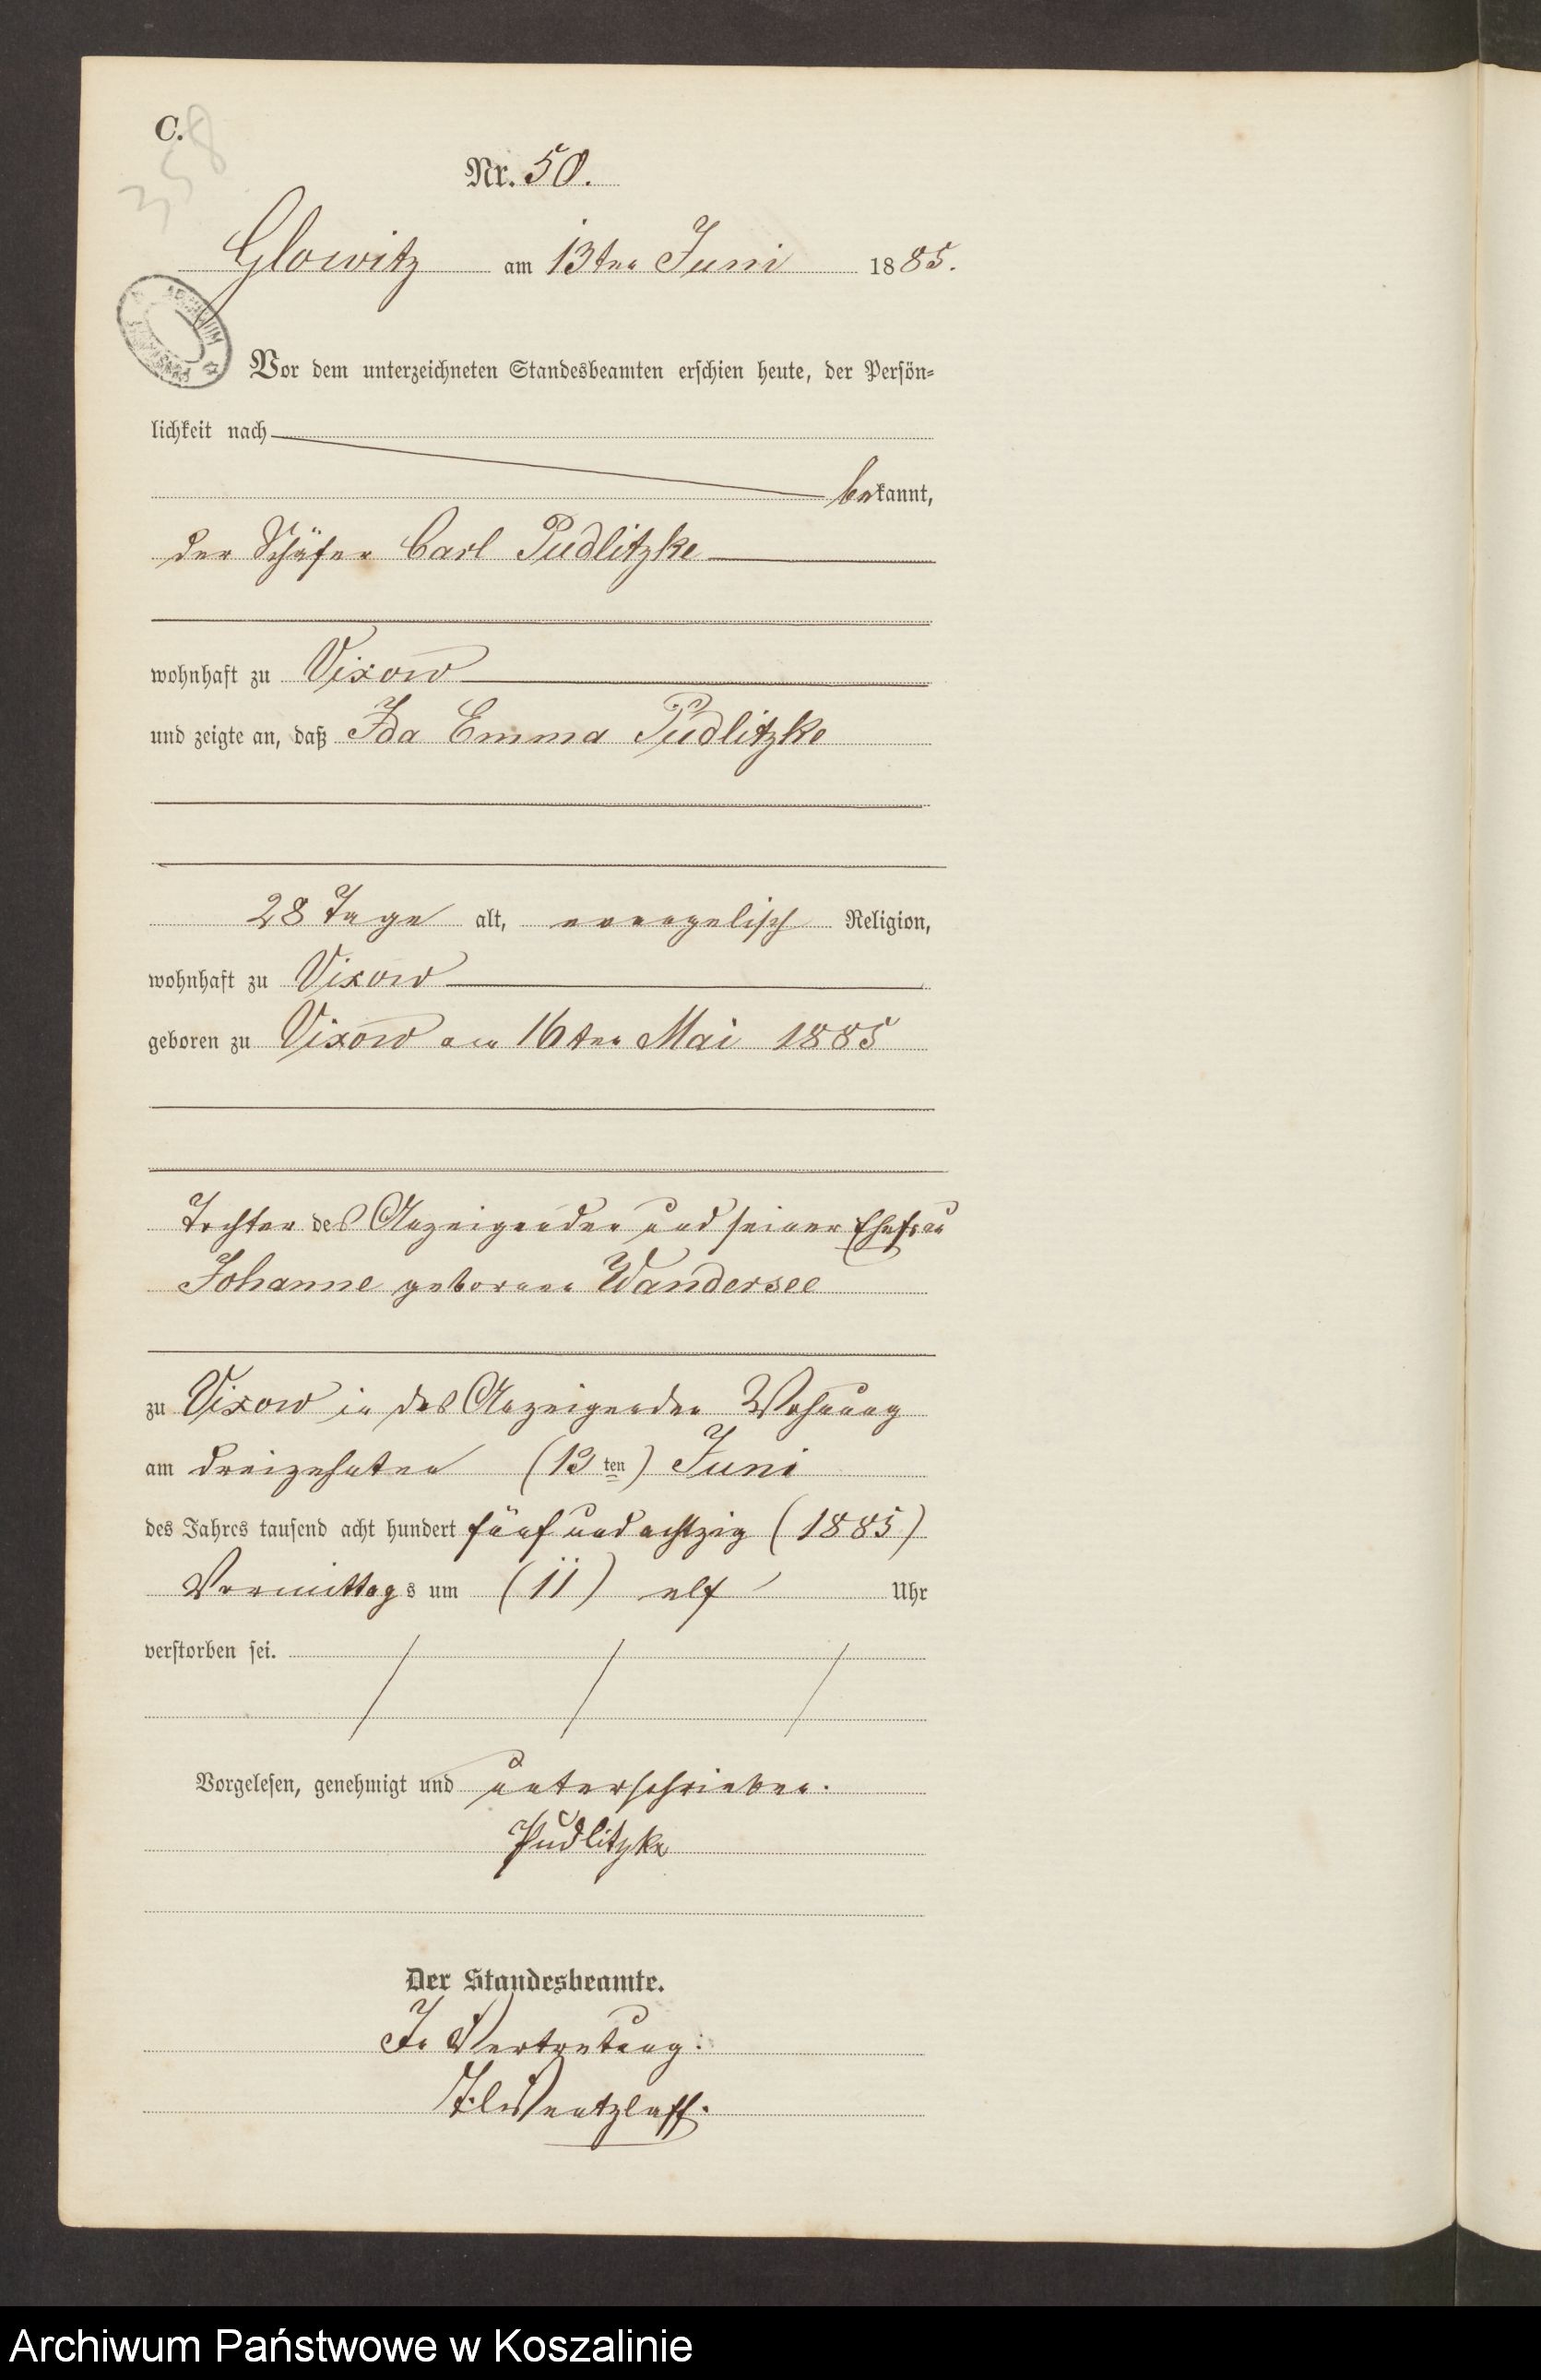 C.
358
Nr. 50.
Glowitz am 13ten Juni 1885.
ARCHIWUM
Vor dem unterzeichneten Standesbeamten erschien heute, der Persön-
lichkeit nach
bekannt,
der Schäfer Carl Pudlitzke
wohnhaft zu Vixow
und zeigte an, daß Ida Emma Pudlitzke
28 Tage alt, evangelisch Religion,
wohnhaft zu Vixow
geboren zu Vixow am 16ten Mai 1885
Tochter des Anzeigenden und seiner Ehefrau
Johanne geborenen Wandersee
zu Vixow in des Anzeigenden Wohnung
am dreizehnten (13ten) Juni
des Jahres tausend acht hundert fünf und achtzig (1885)
Vormittags um (11) elf Uhr
verstorben sei.
Vorgelesen, genehmigt und unterschrieben.
Pudlitzke
Der Standesbeamte.
In Vertretung:
Wentzlaff.
Archiwum Państwowe w Koszalinie